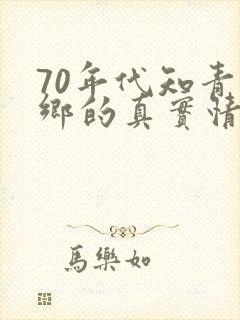 70年代知青
鄉的真實情
馬樂如